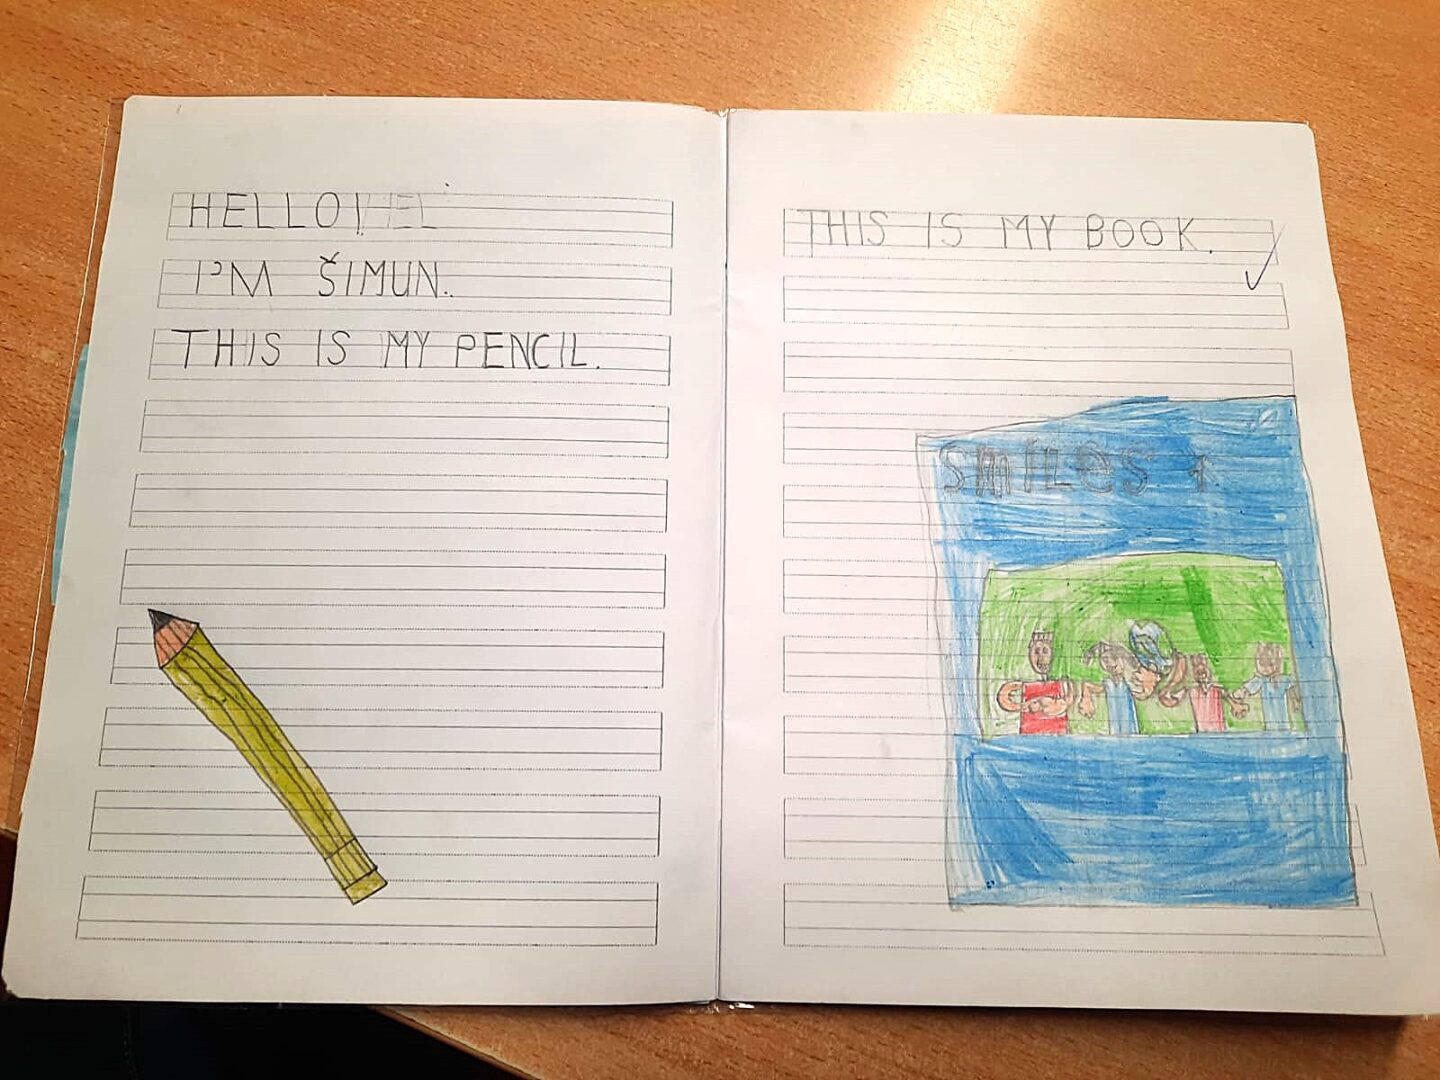 HELLO!
I'M ŠIMUN.
THIS IS MY PENCIL.
THIS IS MY BOOK.
SMILES 1